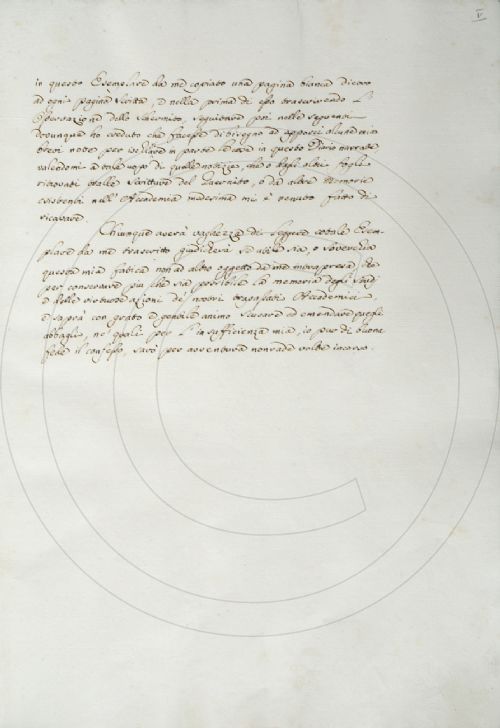 V
in questo Esemplare da me copiato una pagina bianca dietro
ad ogni pagina scritta, e nella prima di esso trascrivendo l'
Narrazione dello Smarrito, seguitare poi nelle seguenti
dovunque ho creduto che facesse di bisogno ad apporvi alcune mie
brevi note per ischiarire in parte le cose in questo Diario narrate
valendomi a tale uopo di quelle notizie, che o dagli altri fogli
ritrovati tralle Scritture del Smarrito, o da altre Memorie
esistenti nell'Accademia medesima mi è venuto fatto di
ricavare.
Chiunque averà vaghezza di leggere cotale Esem-
plare da me trascritto giudicherà se utile sia, o soverchia
questa mia fatica non ad altro oggetto da me intrapresa, che
per conservare più che sia possibile la memoria degli studj
e delle virtuose azioni de' nostri trapassati Accademici,
e saprà con grato e gentile animo scusare ed emendare quegli
abbagli, ne' quali per l'insufficienza mia, io pur di buona
fede il confesso, sarò per avventura non rade volte incorso.